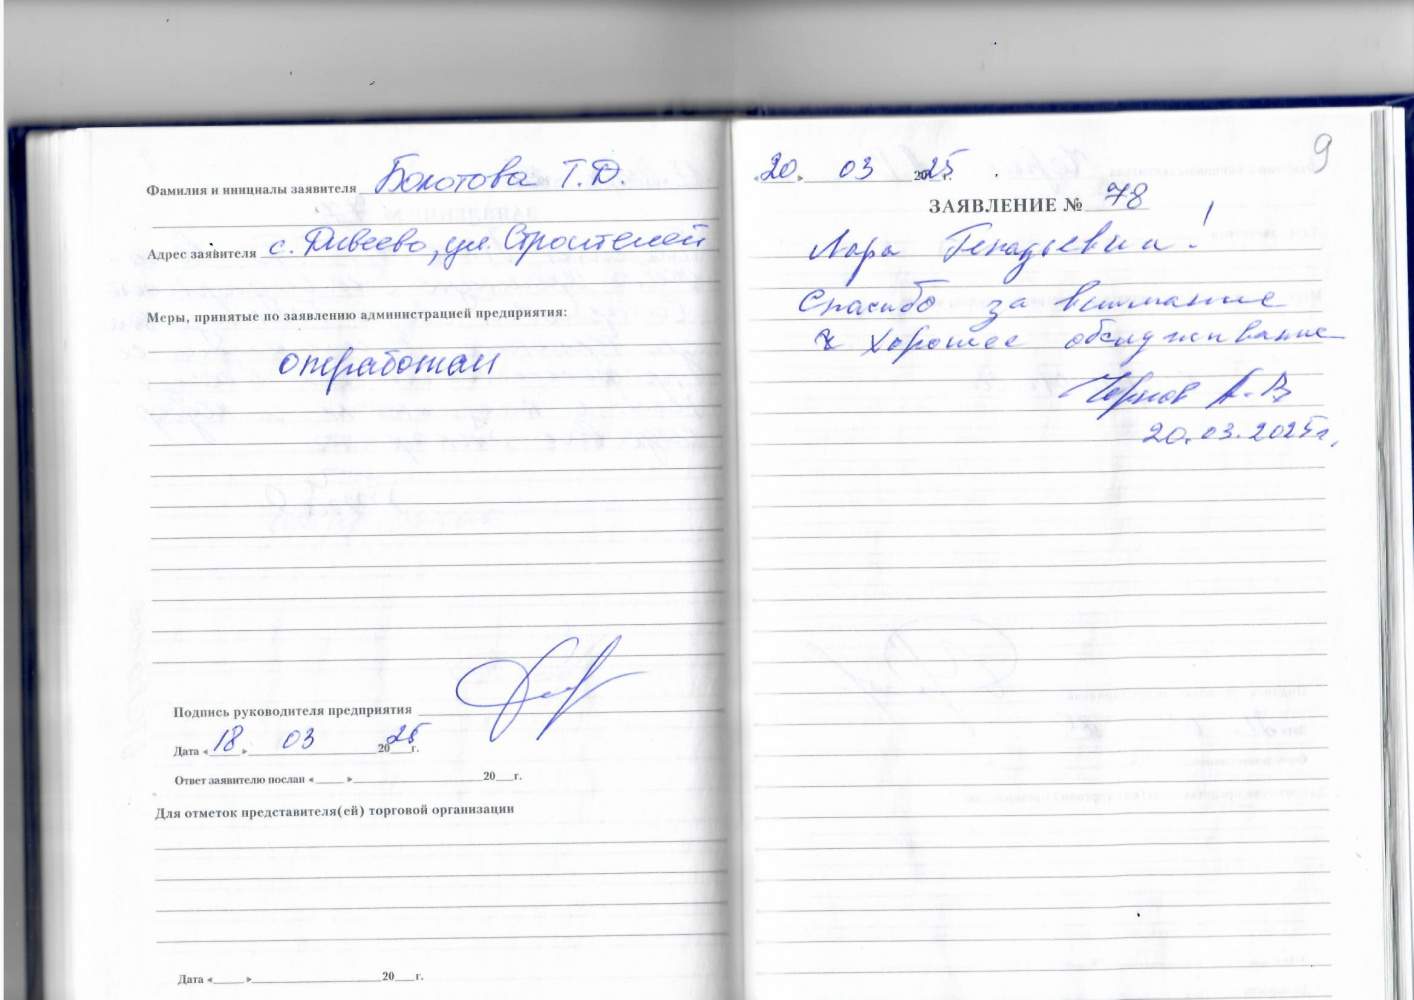 Фамилия и инициалы заявителя Болотова Т.Д.
Адрес заявителя с. Дивеево, ул. Строителей
Меры, принятые по заявлению администрацией предприятия:
Подпись руководителя предприятия
Дата « 18 » 03 2025 г.
Ответ заявителю послан « » 20 г.
Для отметок представителя(ей) торговой организации
Дата « » 20 г.
9
« 20 » 03 2025 г.
ЗАЯВЛЕНИЕ № 78
Лара Генадьевна!
Спасибо за внимание
и хорошее обслуживание
Чернов А.В
20.03.2025г.